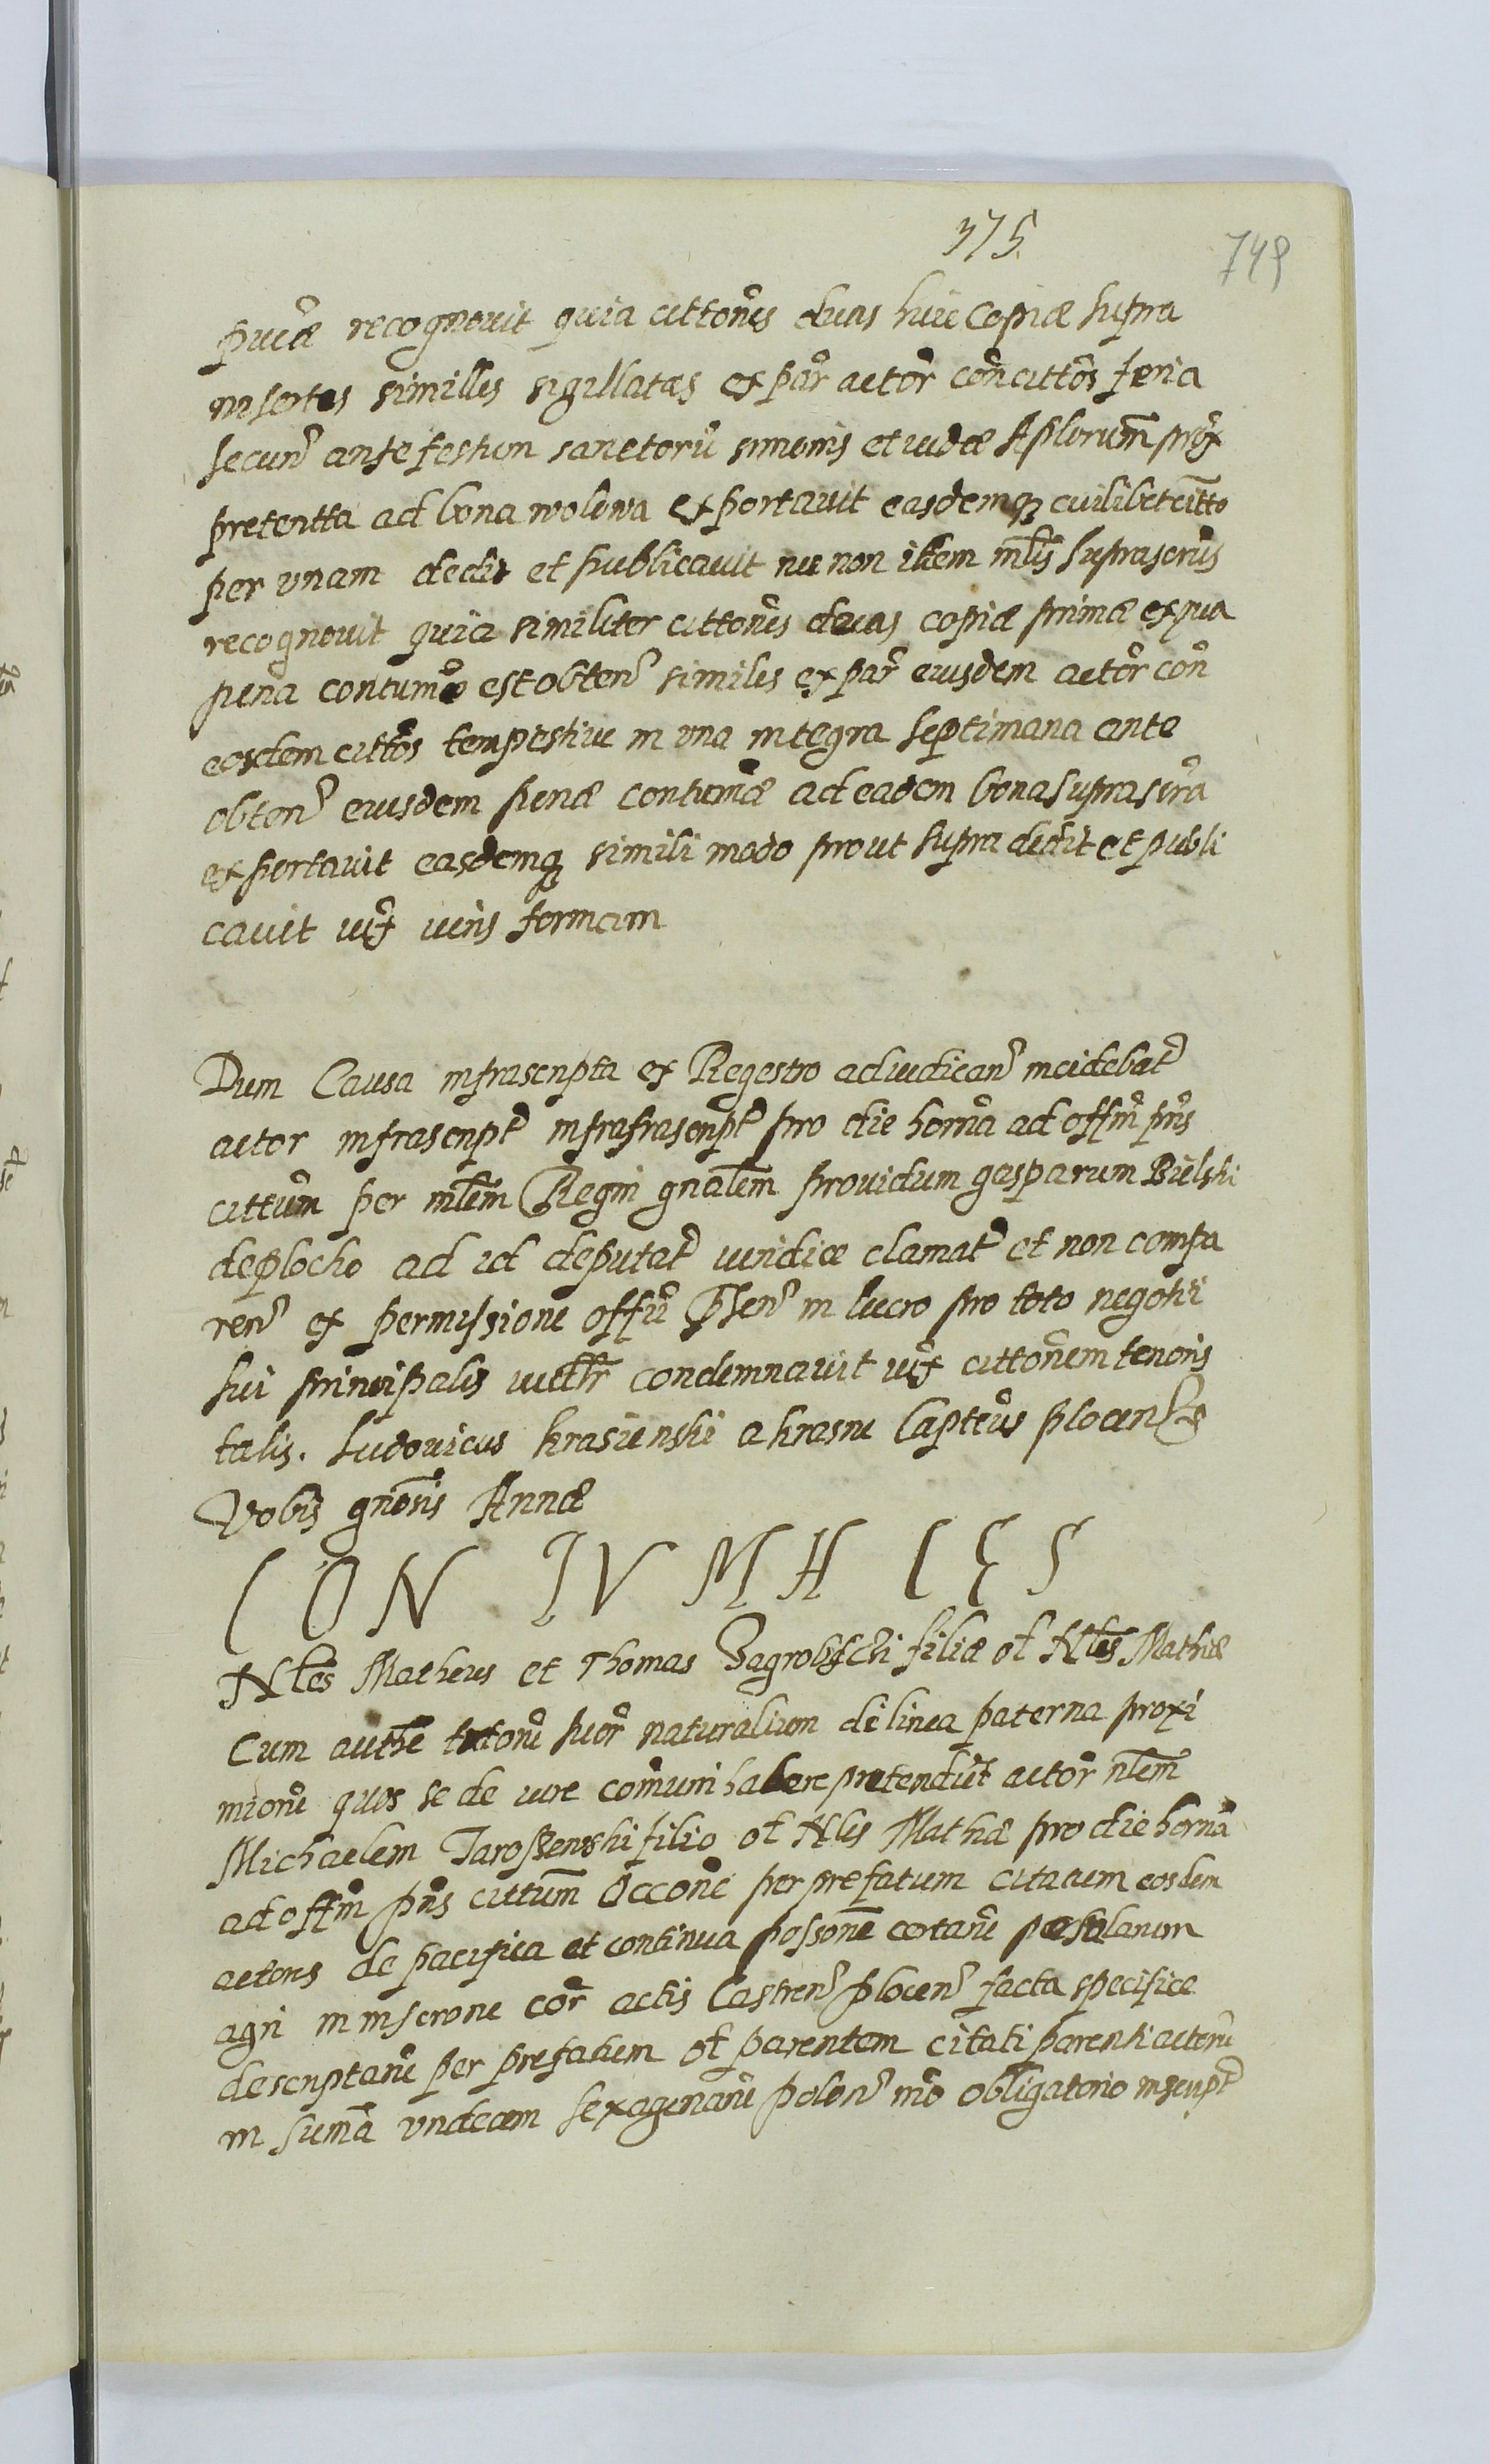 375.
749
recognovit quia citton̄es duas huic copiæ supra
insertas similles sigillatas ex par̄ actor̄ con̄ cittōs feria
secun̄ ante festum sanctorū simonis et iudæ Aplorum̄ prox̄
preteritta ad bona wolowa exportavit easdemq cuilibet citto
per unam dedit et publicavit nec non idem mlīs suprascrīs
recognovit quia similiter citton̄es duas copiæ primæ ex qua
pena contum̄ est obten̄ similes ex par̄ eiusdem actor̄ con̄
eosdem cittōs tempestive in una integra septimana ante
obten̄ eiusdem penæ contumāæ ad eadem bona suprascrā
exportavit easdemq simili modo prout supra dedit et publi
cavit iux̄ iuris formam
Dum Causa infrascripta ex Regestro adiudican̄ incidebat̄
actor infrascript̄ infrafrascript̄ pro die hornā ad offm̄ prn̄s
cittum̄ per mlem̄ Regni gnalem̄ providum gasparum Bielski
de plocko ad id deputat̄ iuridice clamat̄ et non compa
ren̄ ex permissione offii in lucro pro toto negotii
sui principalis condemnavit iux̄ citton̄em tenoris
talis. Ludovicus krasienski a krasne Capteūs plocen̄
Vobis gnōsis Annæ
CON TVMA CES
Nlēs Matheus et Thomas filiæ ol̄ Nlīs Mathiæ
Cum authē tutorū suor̄ naturalium de linea paterna proxi
miorū quos se de iure comūni habere pretendūt actor̄ nlem̄
Michaelem Jaroszewski filio ol̄ Nlis Mathiæ pro die hornā
ad offm̄ prn̄s cittum̄ Occon̄e per prefatum citatum eosdem
actores de pacifica et continua posson̄e certarū
agri in inscrone cor̄ actis Castren̄ plocen̄ facta specifice
descriptarū per prefatum ol̄ parentem citati parenti actorū
in summā undecem sexagenarū polon̄ mō obligatorio inscript̄